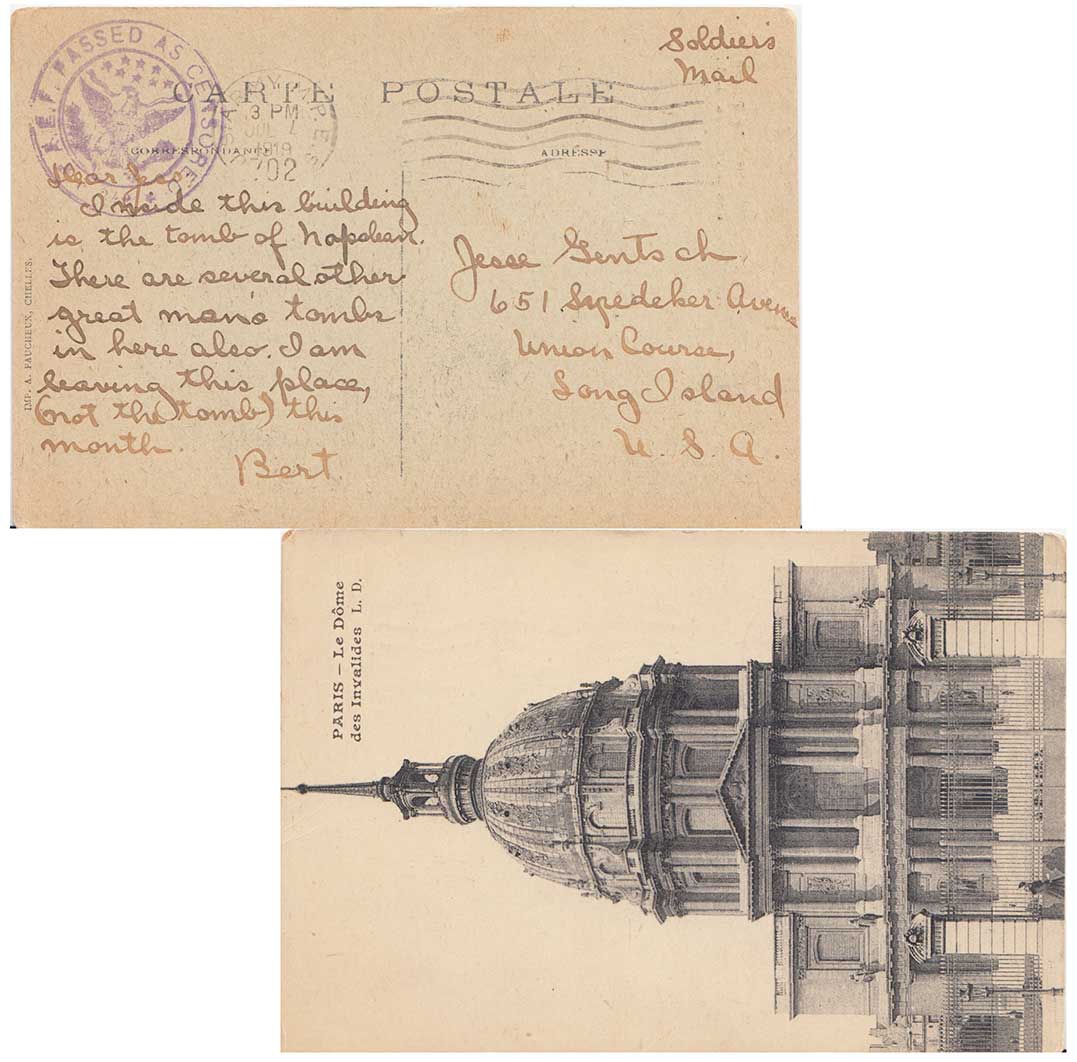 Soldier's
Mail
A.E.F. PASSED AS CENSORED
CARTE POSTALE
3 PM
JUL
1919
702
CORRESPONDANCE
ADRESSE
Dear Jess
Inside this building
is the tomb of Napolean.
There are several other
great mans tombs
in here also. I am
leaving this place,
(not the tomb) this
month.
Bert
Jesse Gentsch
651 Snedeker Avenue
Union Course,
Long Island
U. S. A.
IMP. A. FAUCHEUX, CHELLES.
PARIS - Le Dôme
des Invalides L. D.